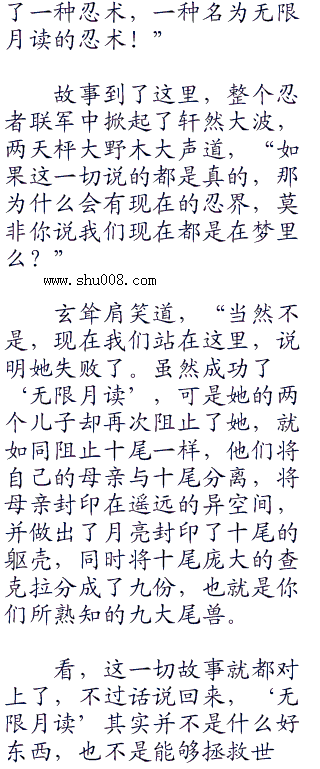 了一种忍术，一种名为无限
月读的忍术！”
故事到了这里，整个忍
者联军中掀起了轩然大波，
两天枰大野木大声道，“如
果这一切说的都是真的，那
为什么会有现在的忍界，莫
非你说我们现在都是在梦里
么？”
www.shu008.com
玄耸肩笑道，“当然不
是，现在我们站在这里，说
明她失败了。虽然成功了
‘无限月读’，可是她的两
个儿子却再次阻止了她，就
如同阻止十尾一样，他们将
自己的母亲与十尾分离，将
母亲封印在遥远的异空间，
并做出了月亮封印了十尾的
躯壳，同时将十尾庞大的查
克拉分成了九份，也就是你
们所熟知的九大尾兽。
看，这一切故事就都对
上了，不过话说回来，‘无
限月读’其实并不是什么好
东西，也不是能够拯救世